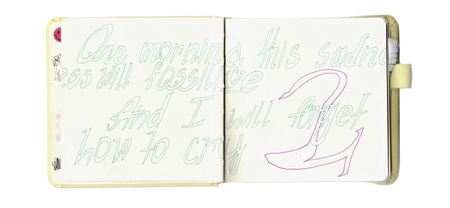 One morning this sadne
ess will fossilize
And I will forget
how to cry